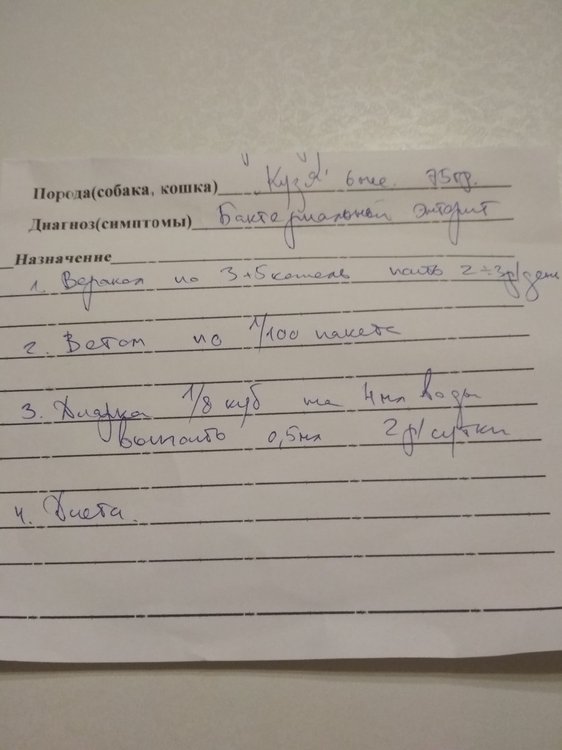 Порода(собака, кошка) "Кузя" 6 мес. 75 гр.
Диагноз(симптомы) Бактериальный энтерит
Назначение
1. Веракол по 3÷5 капель пить 2÷3 р/день
2. Ветом по 1/100 пакета
3. Диарка 1/8 куб на 4 мл воды
выпоить 0,5 мл 2 р/сутки
4. Диета.